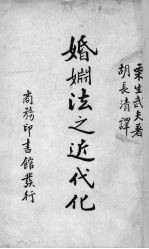 栗生武夫著
胡長清譯
婚姻法之近代化
商務印書館發行